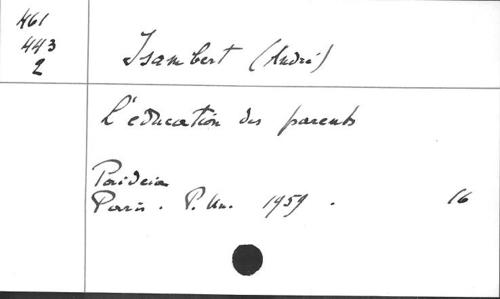 461
443
2
Isambert (André)
L'éducation des parents
Paideia
Paris. P. Un. 1959. 16